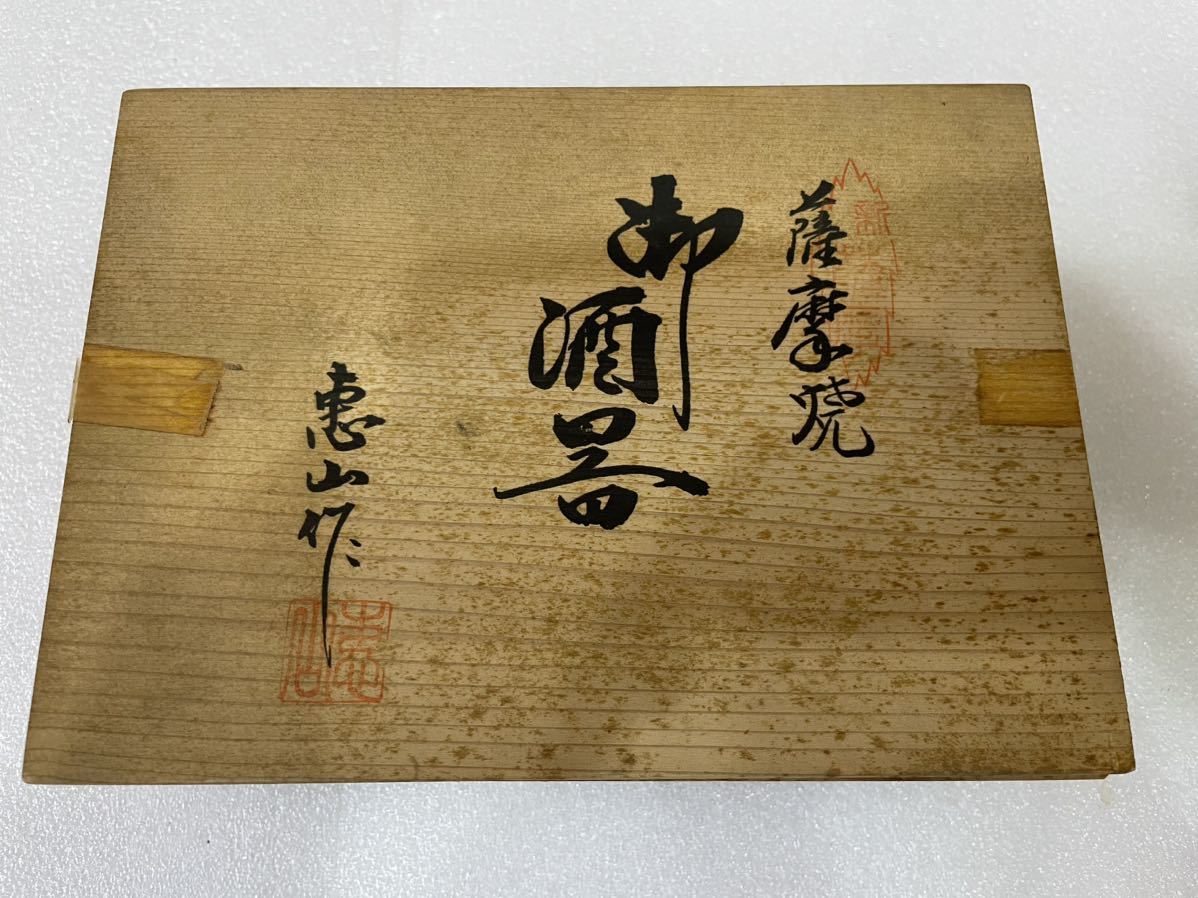 薩摩焼
御酒器
恵山作